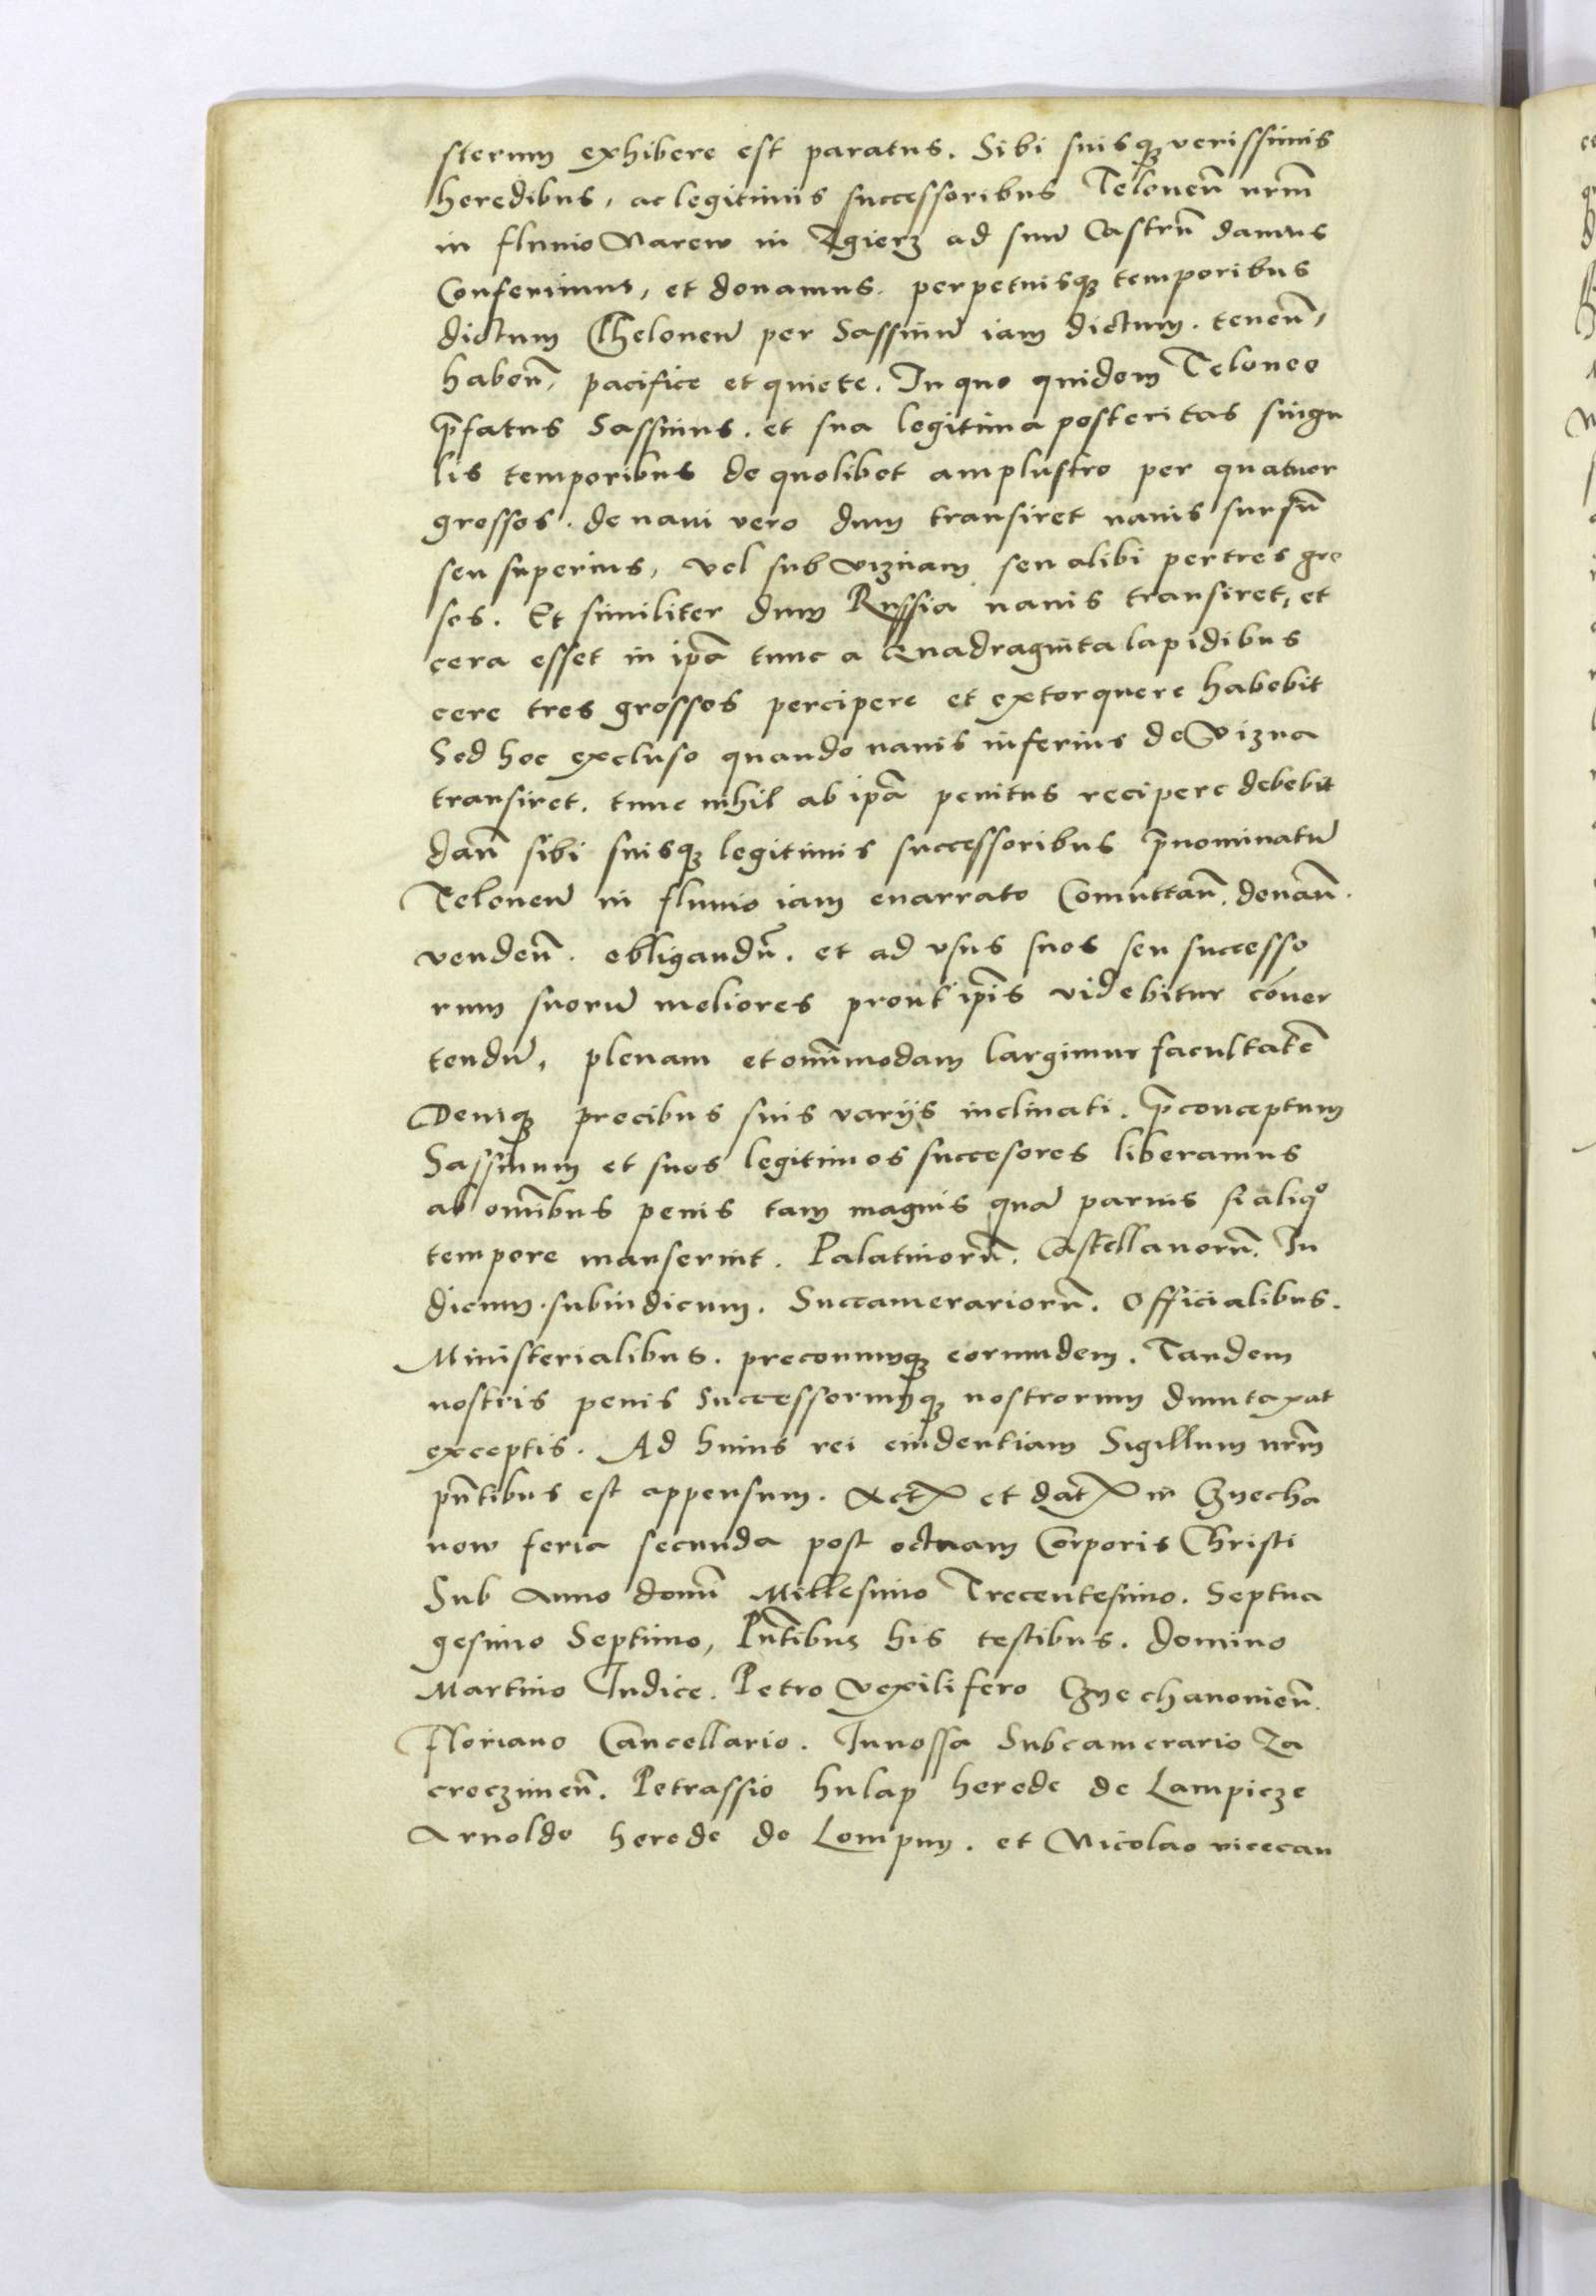 sterum exhibere est paratus. Sibi suisq3 verissimis
heredibus, ac legitimis successoribus Teloneū nrm̄
in fluuio Narew in Zgierz ad suū Castrū damus
Conferimus, et donamus. perpetuisq3 temporibus
dictum Theloneū per Sassinū iam dictum. teneñ,
habeñ, pacifice et quiete. In quo quidem Teloneo
p̄fatus Sassinus. et sua legitima posteritas singu
lis temporibus de quolibet amplustro per quatuor
grossos. de naui vero dum transiret nauis sursū
seu superius, vel sub viznam seu alibi per tres gro
sos. Et similiter dum Russia nauis transiret, et
cera esset in ip̄a tunc a Quadraginta lapidibus
cere tres grossos percipere et extorquere habebit
Sed hoc excluso quando nauis inferius de Vizna
transiret. tunc nihil ab ip̄a penitus recipere debebit
dañ sibi suisq3 legitimis successoribus p̄nominatū
Teloneū in fluuio iam enarrato Comuttañ. donañ.
vendeñ. obligandū. et ad vsus suos seu successo
rum suorū meliores prout ip̄is videbitur cōuer
tendū, plenam et om̄imodam largimur facultatē
Deniq3 precibus suis varijs inclinati. p̄conceptum
Sassinum et suos legitimos succesores liberamus
ab om̄ibus penis tam magnis quā paruis si aliqº
tempore manserint. Palatinorū. Castellanorū. Iu
dicum. subiudicum. Succamerariorū. Officialibus.
Ministerialibus. preconumq3 eorumdem. Tandem
nostris penis Successorumq3 nostrorum dumtaxat
exceptis. Ad huius rei euidentiam Sigillum nrm̄
pn̄tibus est appensum. Act⁊ et dat⁊ in Cznecha
now feria secunda post octauam Corporis Christi
Sub Anno domī Millesimo Trecentesimo. Septua
gesimo Septimo, Pn̄tibus his testibus. domino
Martino Iudice. Petro Vexilifero Cznechanouieñ.
Floriano Cancellario. Junossa Subcamerario Za
croczimeñ. Petrassio hulap herede de Lampicze
Arnoldo herede de Lompny. et Nicolao vicecan